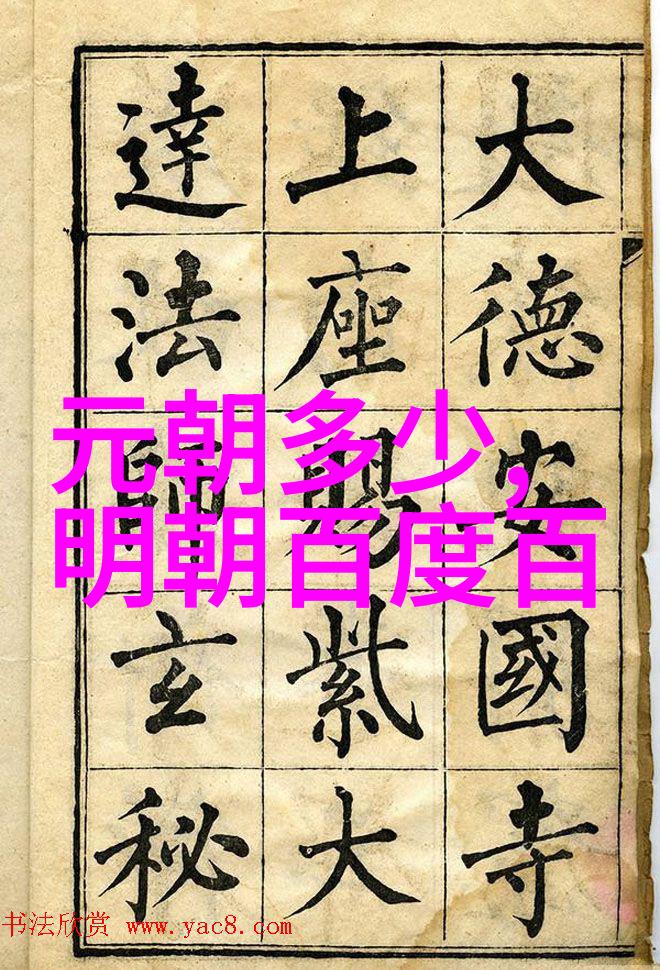 大德安國寺
上座賜紫大
達法師玄秘
元朝多少,
明朝百度百
书法欣赏 www.yac8.com